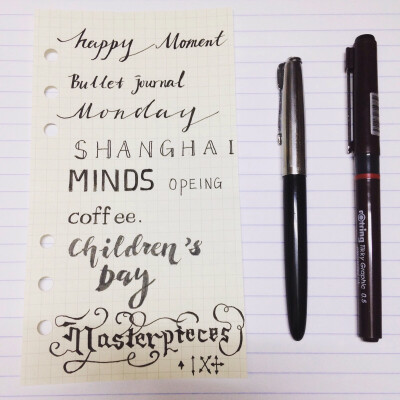 happy Moment
Bullet Journal
Monday
SHANGHAI
MINDS OPEING
coffee.
Children's
Day
Masterpieces
rotring Tikky Graphic 0.8